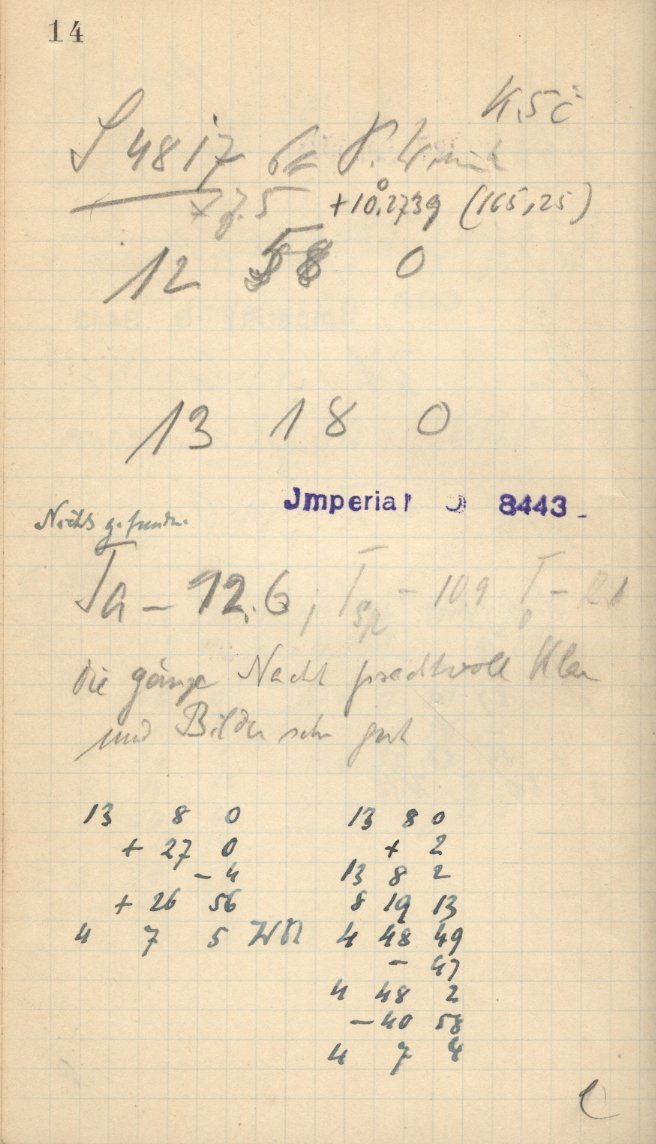 14
K.5 č
S 4817 6c
+7.5 +10.°2739 (165,25)
12 58 0
13 18 0
Jmperial 8443
Nichts gefunden
Ta - 12.6; Tsp - 10.9 T
die ganze Nacht prachtvoll klar
und Bilder sehr gut
13 8 0 13 8 0
+ 27 0 + 2
- 4 13 8 2
+ 26 56 8 19 13
4 7 5 4 48 49
- 47
4 48 2
- 40 58
4 7 4